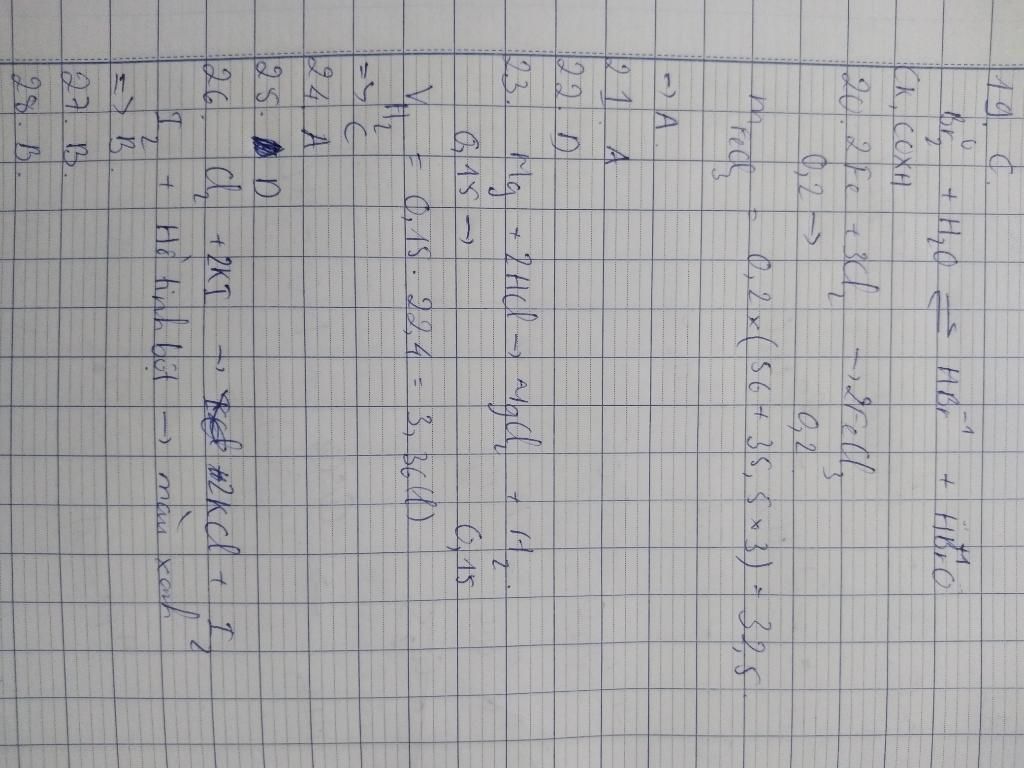 19. C.
Br₂⁰ + H₂O ⇌ HBr⁻¹ + HBr⁺¹O
CK, COXH
20. 2Fe + 3Cl₂ → 2FeCl₃
0,2 → 0,2
m FeCl₃ = 0,2 × (56 + 35,5 × 3) = 32,5.
→ A.
21. A
22. D
23. Mg + 2HCl → MgCl₂ + H₂.
0,15 → 0,15
V H₂ = 0,15. 22,4 = 3,36(l)
=> C
24. A
25. D
26. Cl₂ + 2KI → 2KCl + I₂
I₂ + Hồ tinh bột → màu xanh
=> B.
27. B.
28. B.